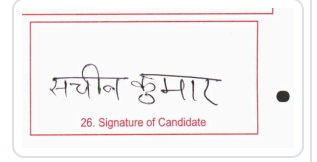 सचीन कुमार
26. Signature of Candidate